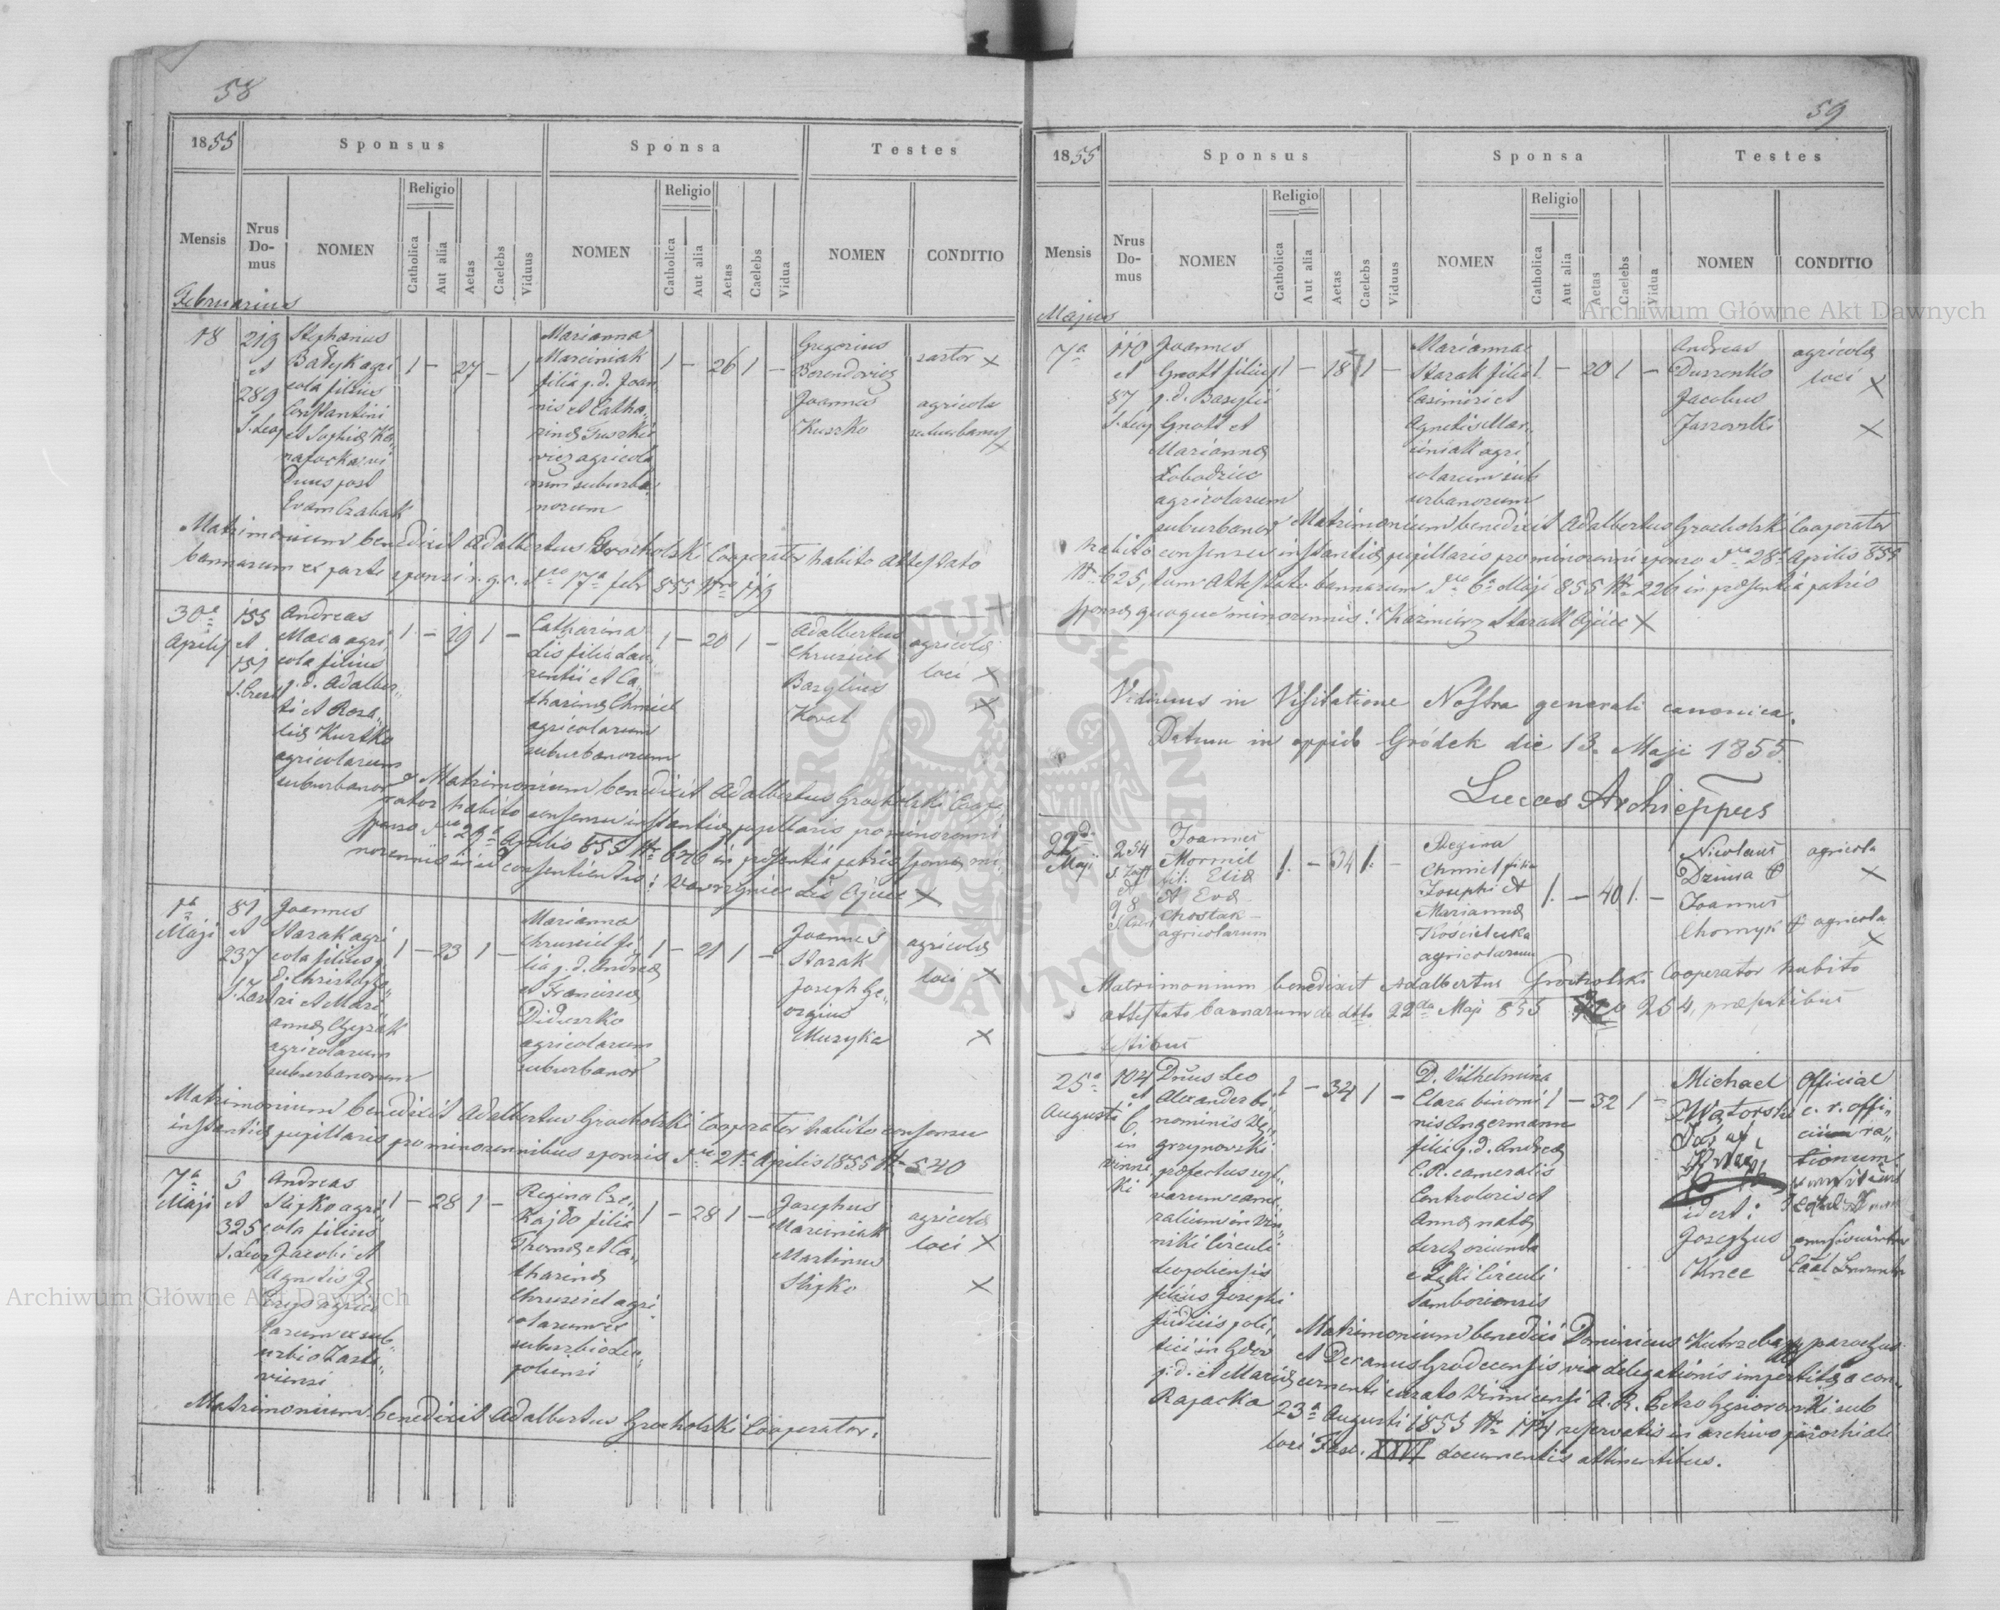 58
1855
Sponsus
Sponsa
Testes
Mensis
Nrus Do- mus
NOMEN
Religio
Catholica
Aut alia
Aetas
Caelebs
Viduus
NOMEN
Religio
Catholica
Aut alia
Aetas
Caelebs
Vidua
NOMEN
CONDITIO
Februarius
18
219
et
289
S. Leop
Stephanus
Batyk agri
cola filius
Constantini
et Sophiae
duus post
Evam Czabak
1 – 27 – 1
Marianna
Marciniak
filia p. d. Joan
nis et Catha„
rinae
vicz agricola
rum suburba„
norum
1 – 26 1 –
Gregorius
Joannes
Kuszko
sartor X
agricola
suburbanus
X
Matrimonium benedixit Adalbertus Grocholski Cooperator habito attestato
bannorum ex parte sponsi r. g. c. 17a febr 855
30a
Aprilis
155
et
151
Andreas
Maca agri„
cola filius
p. d. Adalber„
ti et Rosa„
liae Kurtko
agricolarum
suburbanor
1 – 19 1 –
Catharina
Lis filia Lau„
rentii et Ca„
tharinae Chmiel
agricolarum
suburbanorum
1 – 20 1 –
Adalbertus
Chrusciel
Bazylius
Kovel
agricolae
loci X
X
Matrimonium benedixit Adalbertus Grocholski Coope„
rator habito consensu instantiae pupillaris pro minorenni
sponso 29a Aprilis 855 Nr 626 in presentia patris sponsae mi„
norennis in id consentientis: Wawrzyniec Lis Ojciec X
1a
Maji
81
et
237
Joannes
Starak agri
cola filius p.
d. Christopho„
ri et Mari„
annae Czyzak
agricolarum
suburbanorum
1 – 23 1 –
Marianna
Chrusciel fi„
lia p. d. Andreae
et Franciscae
Diduszko
agricolarum
suburbanor
1 – 21 1 –
Joannes
Starak
Joseph Ge„
orgius
Muzyka
agricolae
loci X
X
Matrimonium benedixit Adalbertus Grocholski Cooperator habito consensu
instantiae pupillaris pro minorennibus sponsis 21a Aprilis 1855 Nr 540
7a
Maji
5
et
325
S. Leop
Andreas
Slipko agri
cola filius
Jacobi et
Agnetis
agrico
larum ex sub„
urbio Zasta„
viensi
1 – 28 1 –
Regina Cze„
kajdo filia
Thomae et Ca„
tharinae
Chrusciel agri
colarum ex
suburbio Leo„
poliensi
1 – 28 1 –
Josephus
Marciniak
Martinus
Slipko
agricolae
loci X
X
Matrimonium benedixit Adalbertus Grocholski Cooperator.
59
1855
Sponsus
Sponsa
Testes
Mensis
Nrus Do- mus
NOMEN
Religio
Catholica
Aut alia
Aetas
Caelebs
Viduus
NOMEN
Religio
Catholica
Aut alia
Aetas
Caelebs
Vidua
NOMEN
CONDITIO
Majus
7a
110
et
87
S. Leop
Joannes
Gnatt filius
p. d. Basylii
Gnatt et
Mariannae
Łobodziec
agricolarum
suburbanor
1 – 18 1 –
Marianna
Starak filia
Casimiri et
Agnetis Mar„
ciniak agri
colarum sub
urbanorum
1 – 20 1 –
Andreas
Duszenko
Jacobus
Jaszowski
agricolae
loci X
X
Matrimonium benedixit Adalbertus Grocholski Cooperator
habito consensu instantiae pupillaris pro minorenni sponso 28a Aprilis 855
Nr 625, tum attestato bannorum 6a Maji 855 Nr 226 in presentia patris
sponsae quoque minorennis: Kazimierz Starak Ojciec X
Vidimus in Visitatione Nostra generali canonica.
Datum in oppido Gródek die 13. Maji 1855.
Lucas Archieppus
22da
Maji
254
et
98
Joannes
Mormil
fil. Eliae
et Evae
Chostak –
agricolarum
1. – 34 1. –
Regina
Chmiel filia
Josephi et
Mariannae
Kościelicka
agricolarum
1. – 40 1. –
Nicolaus
Dzima
Joannes
Chomyk
agricola
X
agricola
X
Matrimonium benedixit Adalbertus Grocholski Cooperator habito
attestato bannorum de dtto 22da Maji 855 254, praesentibus
testibus
25a
Augusti
104
et
6
in
Winni
ki
Dnus Leo
Alexander bi„
nominis We„
grzynovski
praefectus syl„
varum came„
ralium in Win
niki Circuli
Leopoliensis
filius Josephi
judicis poli„
tici in Gdov
p. d. et Mariae
Rajacka
1 – 34 1 –
D. Vilhelmina
Clara binomi
nis Angermann
filia p. d. Andreae
C. R. cameralis
Controloris et
Annae natae
Lerch oriunda
e Łąki Circuli
Samboriensis
1 – 32 1 –
Michael
Wątorski
idest:
Josephus
Knee
Official
c. r. offi„
cii ra„
tionum
Matrimonium benedixi Dominicus Kutrzeba parochus
et Decanus Grodecensis via delegationis impertitae a con„
cernenti curato Winnicensi A. R. Petro Gąsiorowski sub
23a Augusti 1855 Nr 174, reservatis in archivo parochiali
loci Fasc. XXVI documentis attinentibus.
Archiwum Główne Akt Dawnych
Archiwum Główne Akt Dawnych
ARCHIWUM GŁÓWNE AKT DAWNYCH